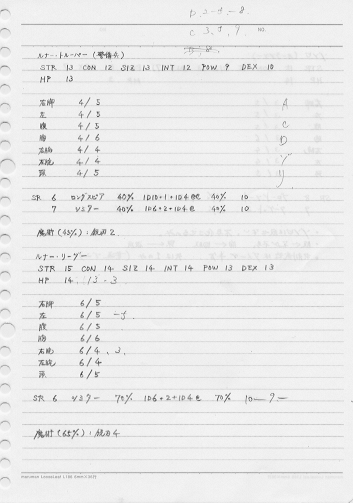 D. 2-3, -8.
C 3, 1, 9.
ルナー・トルーパー (警備兵)
STR 13 CON 12 SIZ 13 INT 12 POW 9 DEX 10
HP 13
右脚 4/5 A
左 4/5
腹 4/5 C
胸 4/6 D
右腕 4/4
左腕 4/4
頭 4/5
SR 6 ロングスピア 40% 1D10+1+1D4 40% 10
7 シミター 40% 1D6+2+1D4 40% 10
魔術 (45%) : 鈍刃2
ルナー・リーダー
STR 15 CON 14 SIZ 14 INT 14 POW 13 DEX 13
HP 14 13 - 3
右脚 6/5
左 6/5
腹 6/5
胸 6/6
右腕 6/4 3.
左腕 6/4
頭 6/5
SR 6 シミター 70% 1D6+2+1D4 70% 10 — 9 —
魔術 (65%) : 鈍刃4